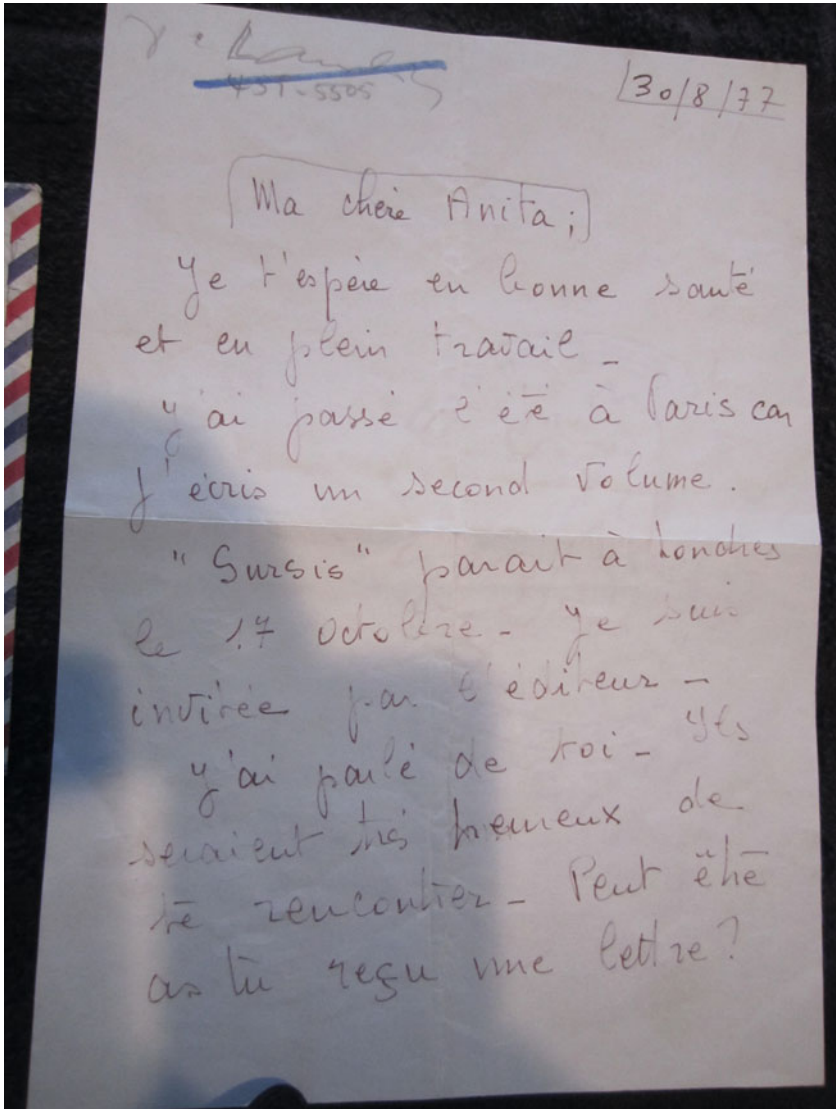 437-5505
30/8/77
Ma chère Anita;
Je t'espère en bonne santé
et en plein travail -
J'ai passé l'été à Paris car
J'écris un second volume.
"Sursis" parait à Londres
le 17 octobre - Je suis
invitée par l'éditeur -
J'ai parlé de toi - Ils
seraient très heureux de
te rencontrer - Peut être
as tu reçu une lettre?